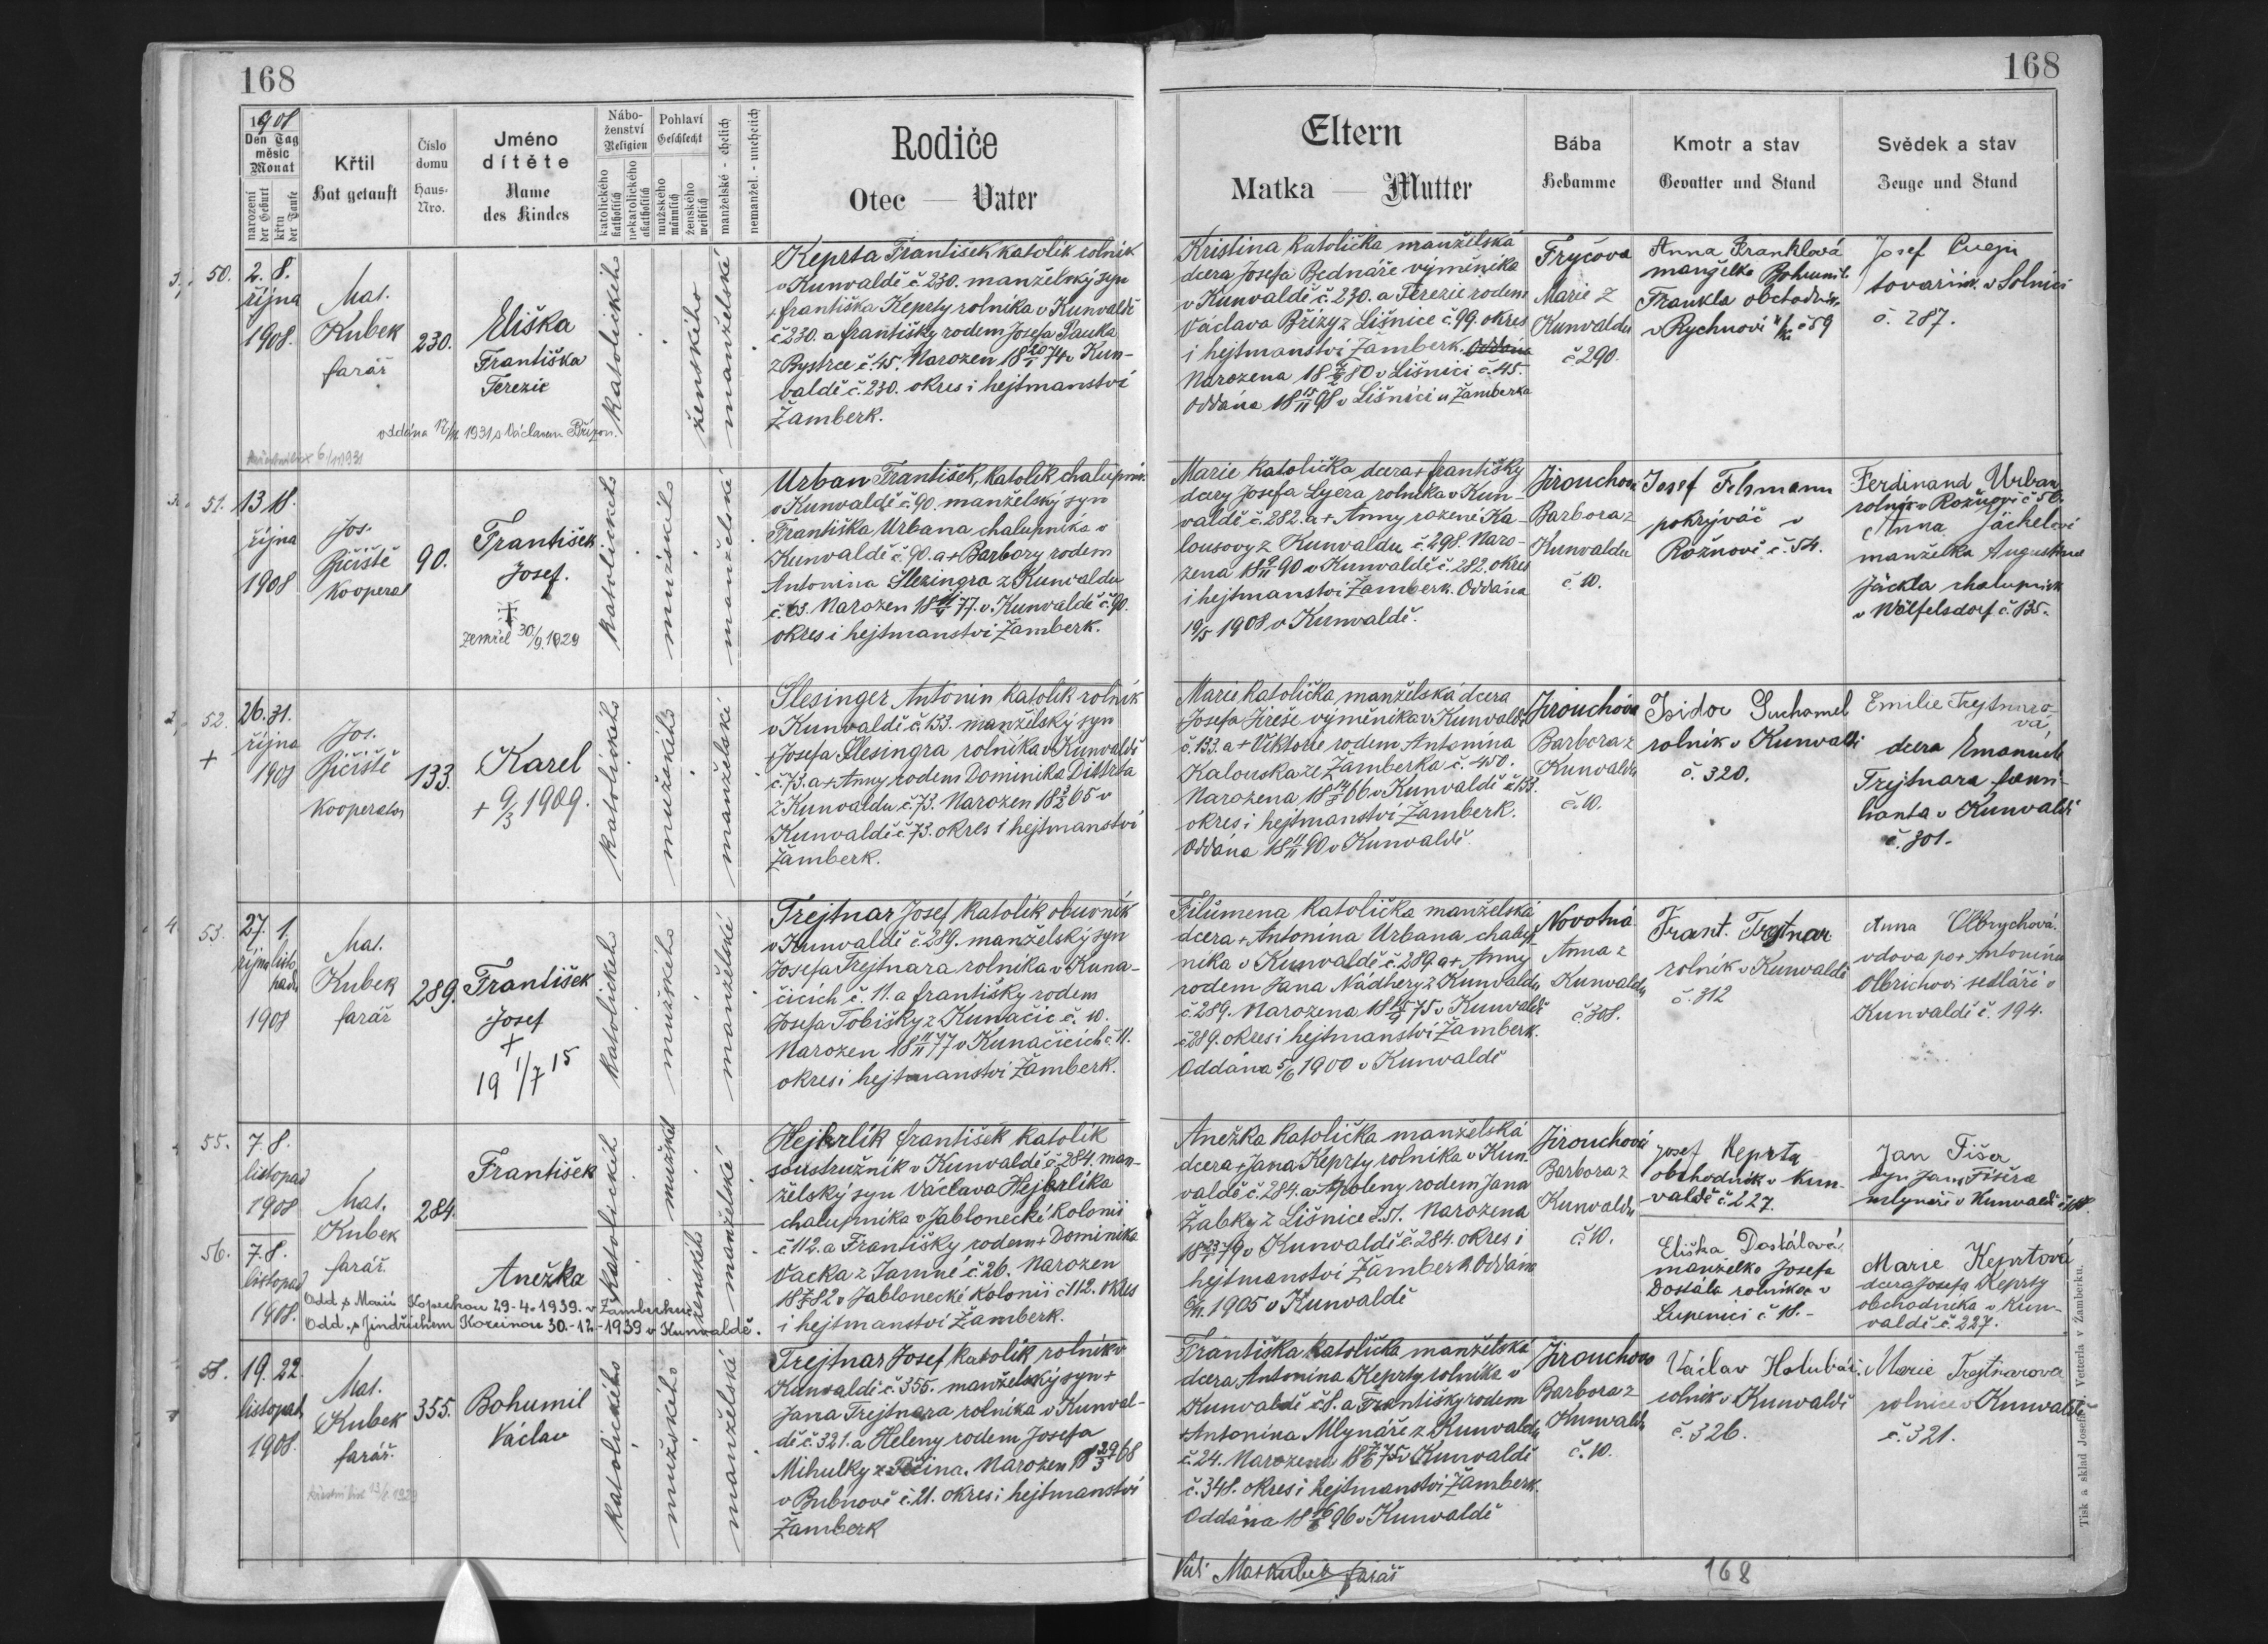 168
1908
Den Tag
měsíc
Monat
narození
der Geburt
křtu
der Taufe
Křtil
Hat getauft
Číslo
domu
Haus-
Nro.
Jméno
dítěte
Name
des Kindes
Nábo-
ženství
Religion
katolického
katholisch
nekatolického
akatholisch
Pohlaví
Geschlecht
mužského
männlich
ženského
weiblich
manželské - ehelich
nemanžel. - unehelich
Rodiče
Otec — Vater
50.
2. 8.
října
1908.
Mat.
Kubek
farář
230.
Eliška
Františka
Terezie
katolického
ženského
manželské
Keprta František katolík rolník
v Kunvaldě č. 230. manželský syn
+ františka Keprty rolníka v Kunvaldě
č 230. a františky rodem Josefa Pauka
z Bystrce č. 45. Narozen 18 74 v Kun-
valdě č. 230. okres i hejtmanství
Žamberk.
oddána 1931 s Václavem
51.
13 18.
října
1908
Jos.
Kooperat
90.
František
Josef.
zemřel 30/9.1929
katolického
mužského
manželské
Urban František, katolík chalupník
v Kunvaldě č. 90. manželský syn
Františka Urbana chalupníka v
Kunvaldě č. 90. a + Barbory rodem
Antonína Šlezingra z Kunvaldu
č. 63. Narozen 18 77. v Kunvaldě č. 90.
okres i hejtmanství Žamberk.
52.
+
26. 31.
října
1908
Jos.
Kooperator
133.
Karel
+ 9/3 1909.
katolického
mužského
manželské
Šlesinger Antonín katolík rolník
v Kunvaldě č. 133. manželský syn
+ Josefa Šlesingra rolníka v Kunvaldě
č. 73. a + Anny rodem Dominika Dittrta
z Kunvaldu č. 73. Narozen 18 65 v
Kunvaldě č. 73. okres i hejtmanství
Žamberk.
4
53.
27. 1.
října listo
pad.
1908
Mat.
Kubek
farář
289.
František
Josef
+
19 1/7 15
katolického
mužského
manželské
Trejtnar Josef katolík obuvník
v Kunvaldě č. 289. manželský syn
Josefa Trejtnara rolníka v Kuna-
čicích č. 11. a františky rodem
Josefa Tobišky z Kunačic č. 10.
Narozen 18 77 v Kunačicích č. 11.
okres i hejtmanství Žamberk.
55.
7. 8.
listopad
1908
Mat.
Kubek
farář.
284.
František
katolického
mužské
manželské
Hejkrlík františek katolík
soustružník v Kunvaldě č. 284. man-
želský syn Václava Hejkrlíka
chalupníka v Jablonecké kolonii
č 112. a Františky rodem + Dominika
Vacka z Jamné č. 26. Narozen
18 82 v Jablonecké kolonii č 112. okres
i hejtmanství Žamberk.
56.
7. 8.
listopad
1908.
Anežka
ženského
Odd. s Marií 29-4-1939. v Žamberku.
Odd. s Jindřichem 30.-12-1939 v Kunvaldě.
58.
19. 22.
listopad
1908.
Mat.
Kubek
farář.
355.
Bohumil
Václav
katolického
mužského
manželské
Trejtnar Josef katolík, rolník v
Kunvaldě č. 355. manželský syn +
Jana Trejtnara rolníka v Kunval-
dě č. 321. a Heleny rodem Josefa
Mihulky z Narozen 18 68
v Bubnově č. 21. okres i hejtmanství
Žamberk
168
Eltern
Matka — Mutter
Bába
Hebamme
Kmotr a stav
Gevatter und Stand
Svědek a stav
Zeuge und Stand
Kristina katolička manželská
dcera Josefa Bednáře výměnika
v Kunvaldě č. 230. a Terezie rodem
Václava Břízy z Lišnice č. 99. okres
i hejtmanství Žamberk. Oddána
Narozena 18 80 v Lišnici č. 45.
Oddána 18 98 v Lišnici u Žamberka
Fryčova
Marie z
Kunvaldu
č 290.
Anna Franklová
manželka Bohumila
Frankla obchodník
v Rychnově n/K. č 59
Josef
v Solnici
č. 287.
Marie katolička dcera + františky
dcery Josefa Lyera rolníka v Kun-
valdě č. 282. a + Anny rozené Ka-
lousovy z Kunvaldu č. 298. Naro-
zena 18 90 v Kunvaldě č. 282. okres
i hejtmanství Žamberk. Oddána
19/5 1908 v Kunvaldě.
Jirouchova
Barbora z
Kunvaldu
č 10.
Josef
pokrývač v
č. 54.
Ferdinand Urban
rolník v
Anna Jäckelová
manželka Augustina
Jäckla chalupník
v Wölfelsdorf č. 135.
Marie katolička, manželská dcera
Josefa Jireše výměnika v Kunvaldě
č. 133. a + Viktorie rodem Antonína
Kalouska ze Žamberka č. 450.
Narozena 18 66 v Kunvaldě č 133.
okres i hejtmanství Žamberk.
Oddána 18 90 v Kunvaldě.
Jirouchova
Barbora z
Kunvaldu
č. 10.
Isidor Suchomel
rolník v Kunvaldě
č. 320.
Emilie Trejtnaro-
vá,
dcera Emanuele
Trejtnara
v Kunvaldě
č. 301.
Filůmena katolička manželská
dcera + Antonína Urbana chalup-
níka v Kunvaldě č. 289. a + Anny
rodem Jana Nádhery z Kunvaldu
č. 289. Narozena 18 75 v Kunvaldě
č 289. okres i hejtmanství Žamberk.
Oddána 5/6 1900 v Kunvaldě
Novotná
Anna z
Kunvaldu
č. 308.
Frant. Trejtnar
rolník v Kunvaldě
č. 312
Anna Olbrychová.
vdova po + Antonínu
Olbrichovi sedláři v
Kunvaldě č. 194.
Anežka katolička manželská
dcera + Jana Keprty rolníka v Kun-
valdě č. 284. a Apoleny rodem Jana
Žabky z Lišnice č. 51. Narozena
18 79 v Kunvaldě č. 284. okres i
hejtmanství Žamberk Oddána
1905 v Kunvaldě
Jirouchová
Barbora z
Kunvaldu
č. 10.
Josef Keprta
obchodník v Kun-
valdě č. 227.
Jan Fišer
syn Jana Fišera
mlynáře v Kunvaldě
Eliška Dostálová
manželka Josefa
Dostála rolníka v
Lupenici č 18.-
Marie Keprtová
dcera Josefa Keprty
obchodníka v Kun-
valdě č. 227.
Františka katolička manželská
dcera Antonína Keprty rolníka v
Kunvaldě č. 8. a Františky rodem
+ Antonína Mlynáře z Kunvaldu
č. 24. Narozena 18 75 v Kunvaldě
č. 348. okres i hejtmanství Žamberk.
Oddána 18 96 v Kunvaldě
Jirouchova
Barbora z
Kunvaldu
č. 10.
Václav
rolník v Kunvaldě
č. 326.
Marie Trejtnarova
rolnice v Kunvaldě
č. 321.
Mat Kubek farář
168
Tisk a sklad Josefa L. Vetterla v Žamberku.